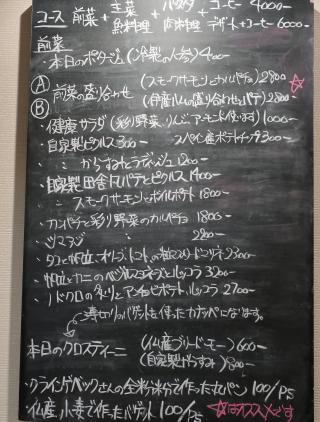 コース 前菜+主菜 魚料理+パスタ 肉料理+コーヒー 4000-
デザート+コーヒー 6000-
前菜
・本日のポタージュ(冷製の人参) 400-
Ⓐ 前菜の盛り合わせ(スモークサーモンとカルパッチョ) 2800
Ⓑ (伊産ハムの盛り合わせ、パテ) 2800-
・健康サラダ(彩り野菜、りんご、アーモンド使います) 1000-
・自家製ピクルス 300- スペイン産ポテトチップ 300-
・〃 からすみとラディッシュ 1200-
・自家製田舎風パテとピクルス 1400-
・〃 スモークサーモンとボイルポテト 1800-
・カンパチと彩り野菜のカルパッチョ 1800-
・シマアジ 〃 2200-
・タコと帆立 2300-
・帆立とカニの ルッコラ 3200-
・ノドグロの アンチョビポテト、ルッコラ 2700-
薄切りのバゲットを使ったカナッペになります。
本日のクロスティーニ(仏産ブリードモー) 600-
(自家製からすみ) 800-
・クラインゲベックさんの全粒粉で作った丸パン 100/Ps
・仏産小麦で作ったバゲット 100/Ps ☆はオススメです